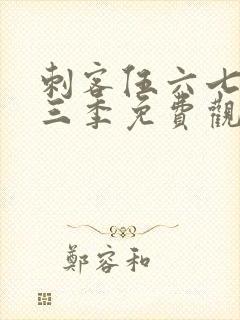 刺客伍六七
三季免費觀
鄭容和